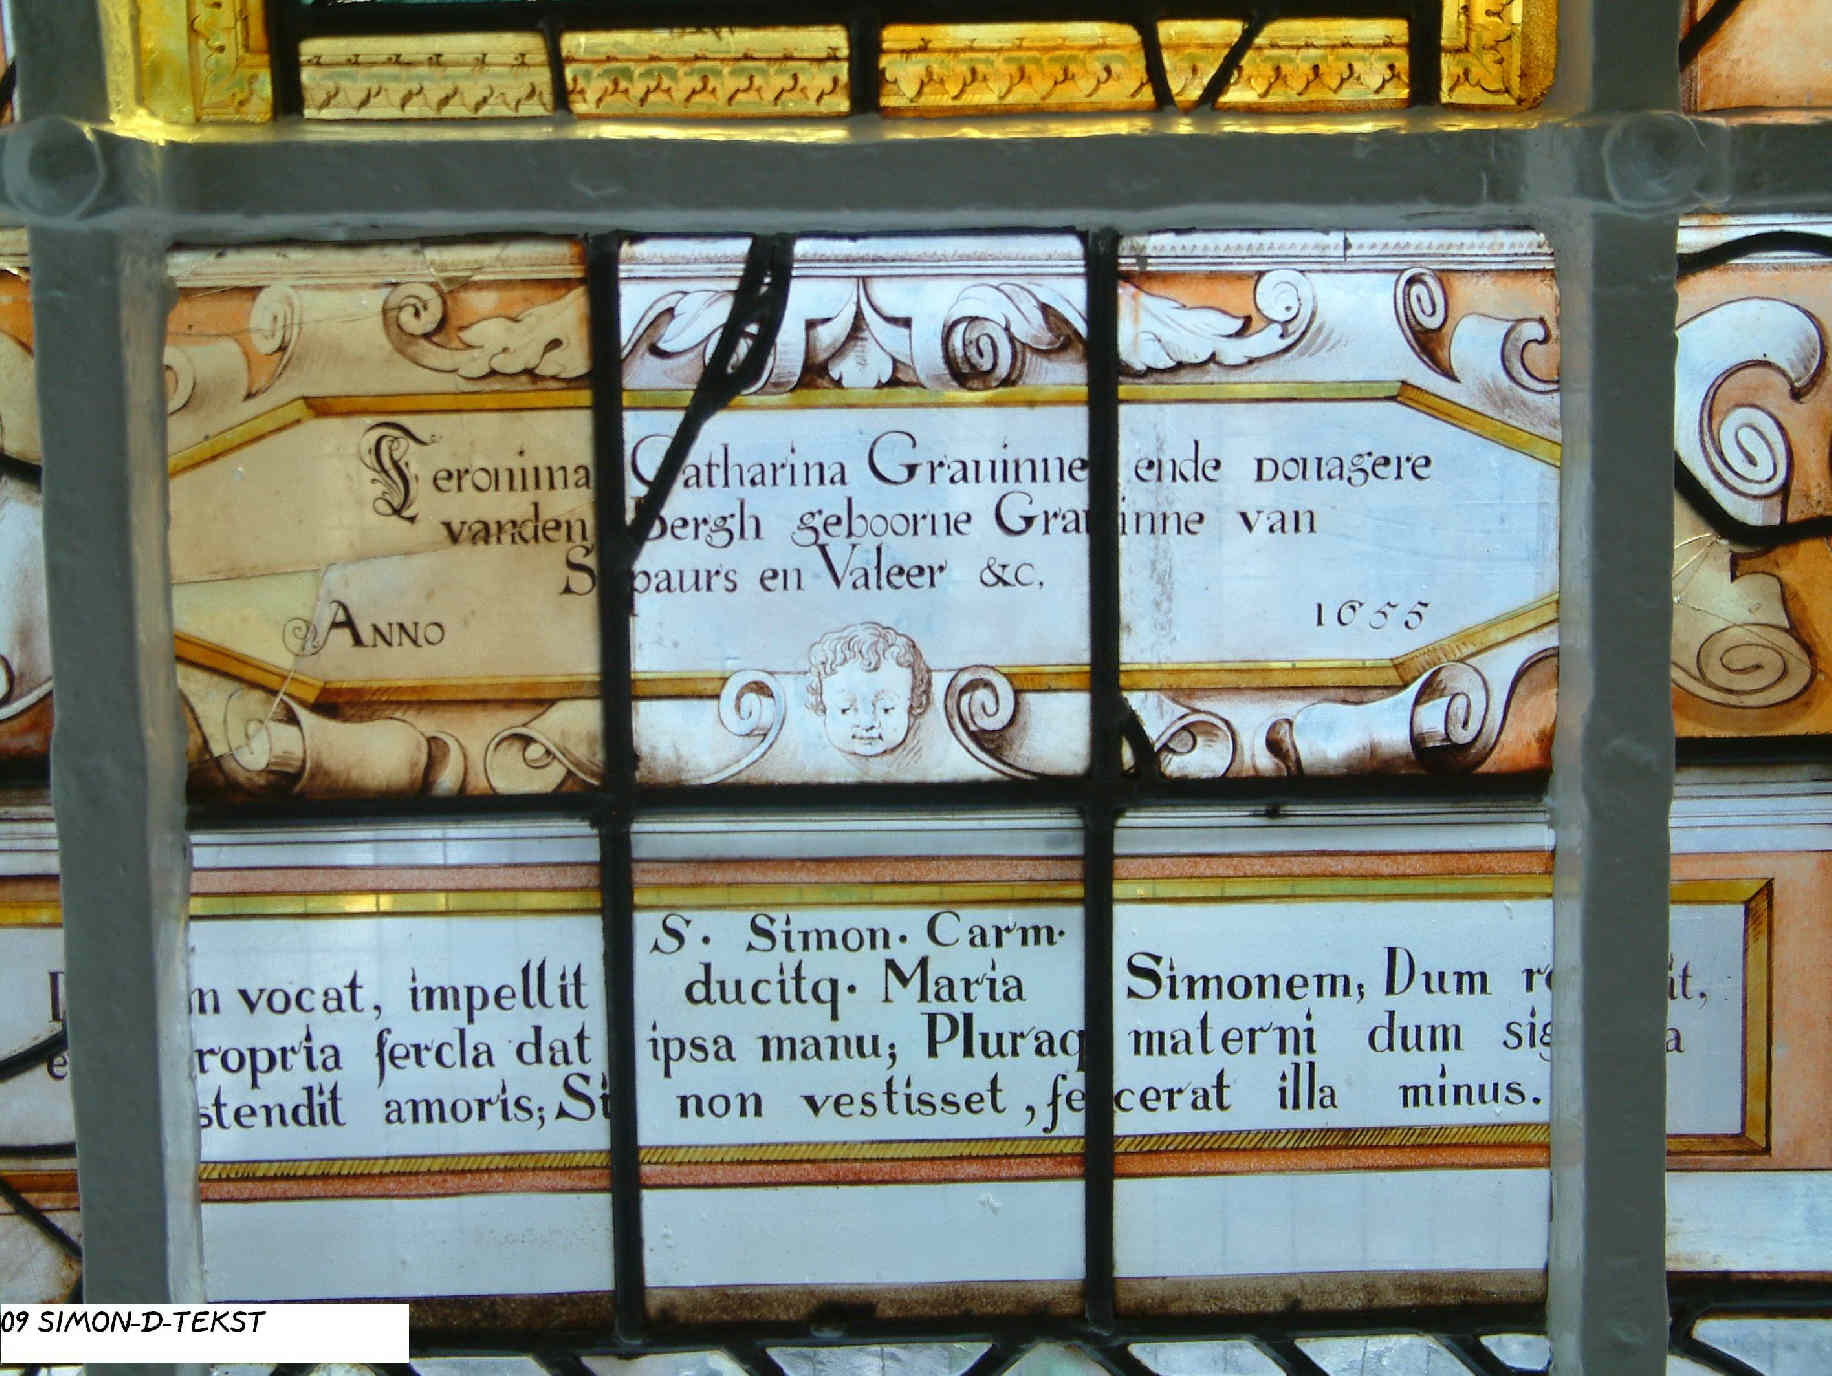 Ieronima Catharina Grauinne ende Douagere
vanden Bergh geboorne Grauinne van
Spaurs en Valeer &c.
ANNO 1655
S. Simon. Carm.
vocat, impellit ducitq. Maria Simonem; Dum
ropria fercla dat ipsa manu; Pluraq materni dum
stendit amoris; Si non vestisset, fecerat illa minus.
09 SIMON-D-TEKST